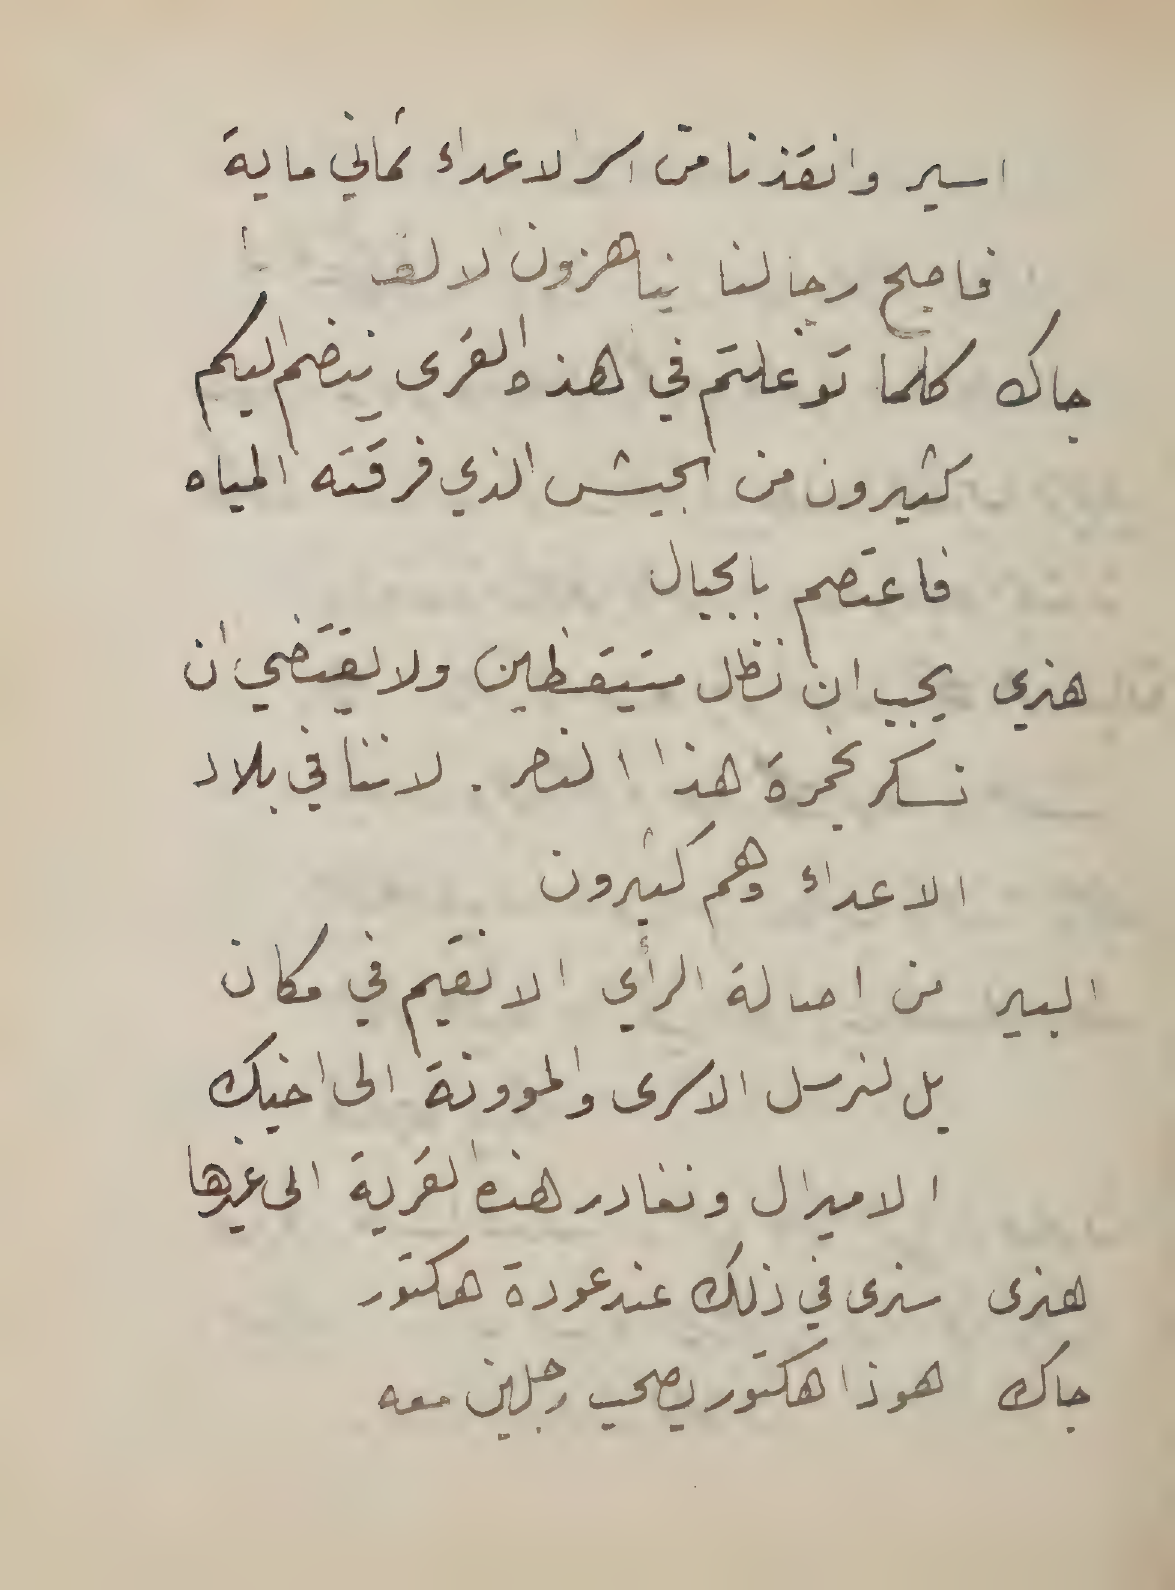 اسير وانقذنا من اسر الاعداء ثماني ماية
فاصبح رجالنا يناهزون الالف
جاك كلما توغلتم في هذه القرى ينضم اليكم
كثيرون من الجيش الذي فرقته المياه
فاعتصم بالجبال
هنري يجب ان نظل متيقظين ولا يقتضي ان
نسكر بخمرة هذا النصر . لاننا في بلاد
الاعداء وهم كثيرون
البير من اصالة الرأي الا نقيم في مكان
بل لنرسل الاسرى والموونة الى اخيك
الاميرال ونغادر هذه القرية الى غيرها
هنرى سنرى في ذلك عند عودة هكتور
جاك هوذا هكتور يصحب رجلين معه